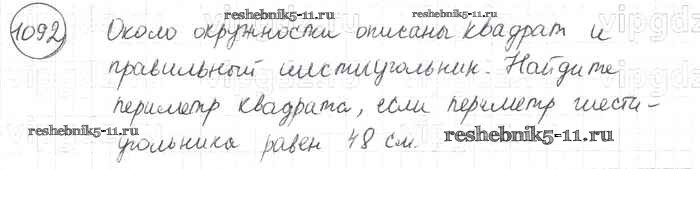 reshebnik5-11.ru
reshebnik5-11.ru
1092 Около окружности описаны квадрат и
правильный шестиугольник. Найдите
периметр квадрата, если периметр шести-
reshebnik5-11.ru
reshebnik5-11.ru
угольника равен 48 см.